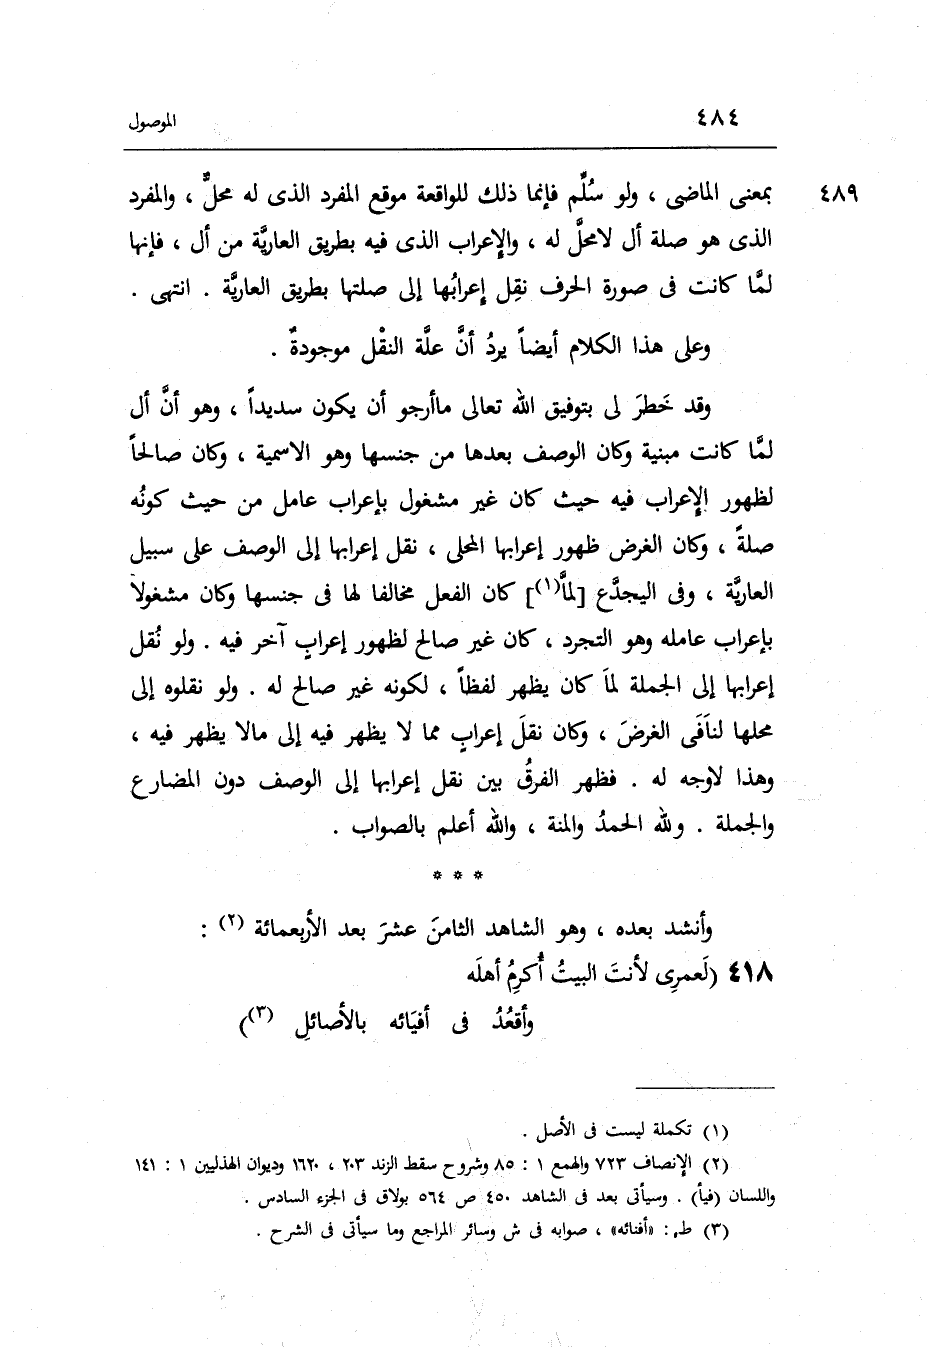 ٤٨٤ الموصول
٤٨٩ بمعنى الماضى ، ولو سُلِّم فإنما ذلك للواقعة موقع المفرد الذى له محلٌّ ، والمفرد
الذى هو صلة أل لامحلَّ له ، والإعراب الذى فيه بطريق العاريَّة من أل ، فإنها
لمَّا كانت فى صورة الحرف نقِل إعرابُها إلى صلتها بطريق العاريَّة . انتهى .
وعلى هذا الكلام أيضاً يردُ أنَّ علَّة النقْل موجودةٌ .
وقد خَطرَ لى بتوفيق الله تعالى ماأرجو أن يكون سديداً ، وهو أنَّ أل
لمَّا كانت مبنية وكان الوصف بعدها من جنسها وهو الاسمية ، وكان صالحاً
لظهور الإعراب فيه حيث كان غير مشغول بإعراب عامل من حيث كونُه
صلةً ، وكان الغرض ظهور إعرابها المحلى ، نقل إعرابها إلى الوصف على سبيل
العاريَّة ، وفى اليجدَّع [لمَّا(١)] كان الفعل مخالفا لها فى جنسها وكان مشغولاً
بإعراب عامله وهو التجرد ، كان غير صالح لظهور إعرابٍ آخر فيه . ولو نُقل
إعرابها إلى الجملة لمَا كان يظهر لفظاً ، لكونه غير صالح له . ولو نقلوه إلى
محلها لنَافَى الغرضَ ، وكان نقلَ إعرابٍ مما لا يظهر فيه إلى مالا يظهر فيه ،
وهذا لاوجه له . فظهر الفرقُ بين نقل إعرابها إلى الوصف دون المضارع
والجملة . ولله الحمدُ والمنة ، والله أعلم بالصواب .
* * *
وأنشد بعده ، وهو الشاهد الثامنَ عشرَ بعد الأربعمائة (٢) :
٤١٨ (لَعمرِى لأنتَ البيتُ أُكرِمُ أهلَه
وأقعُدُ فى أفيَائه بالأصائلِ (٣))
(١) تكملة ليست فى الأصل .
(٢) الإنصاف ٧٢٣ والهمع ١ : ٨٥ وشروح سقط الزند ٢٠٣ ، ١٦٢٠ وديوان الهذليين ١ : ١٤١
واللسان (فيأ) . وسيأتى بعد فى الشاهد ٤٥٠ ص ٥٦٤ بولاق فى الجزء السادس .
(٣) ط : «أفنائه» ، صوابه فى ش وسائر المراجع وما سيأتى فى الشرح .